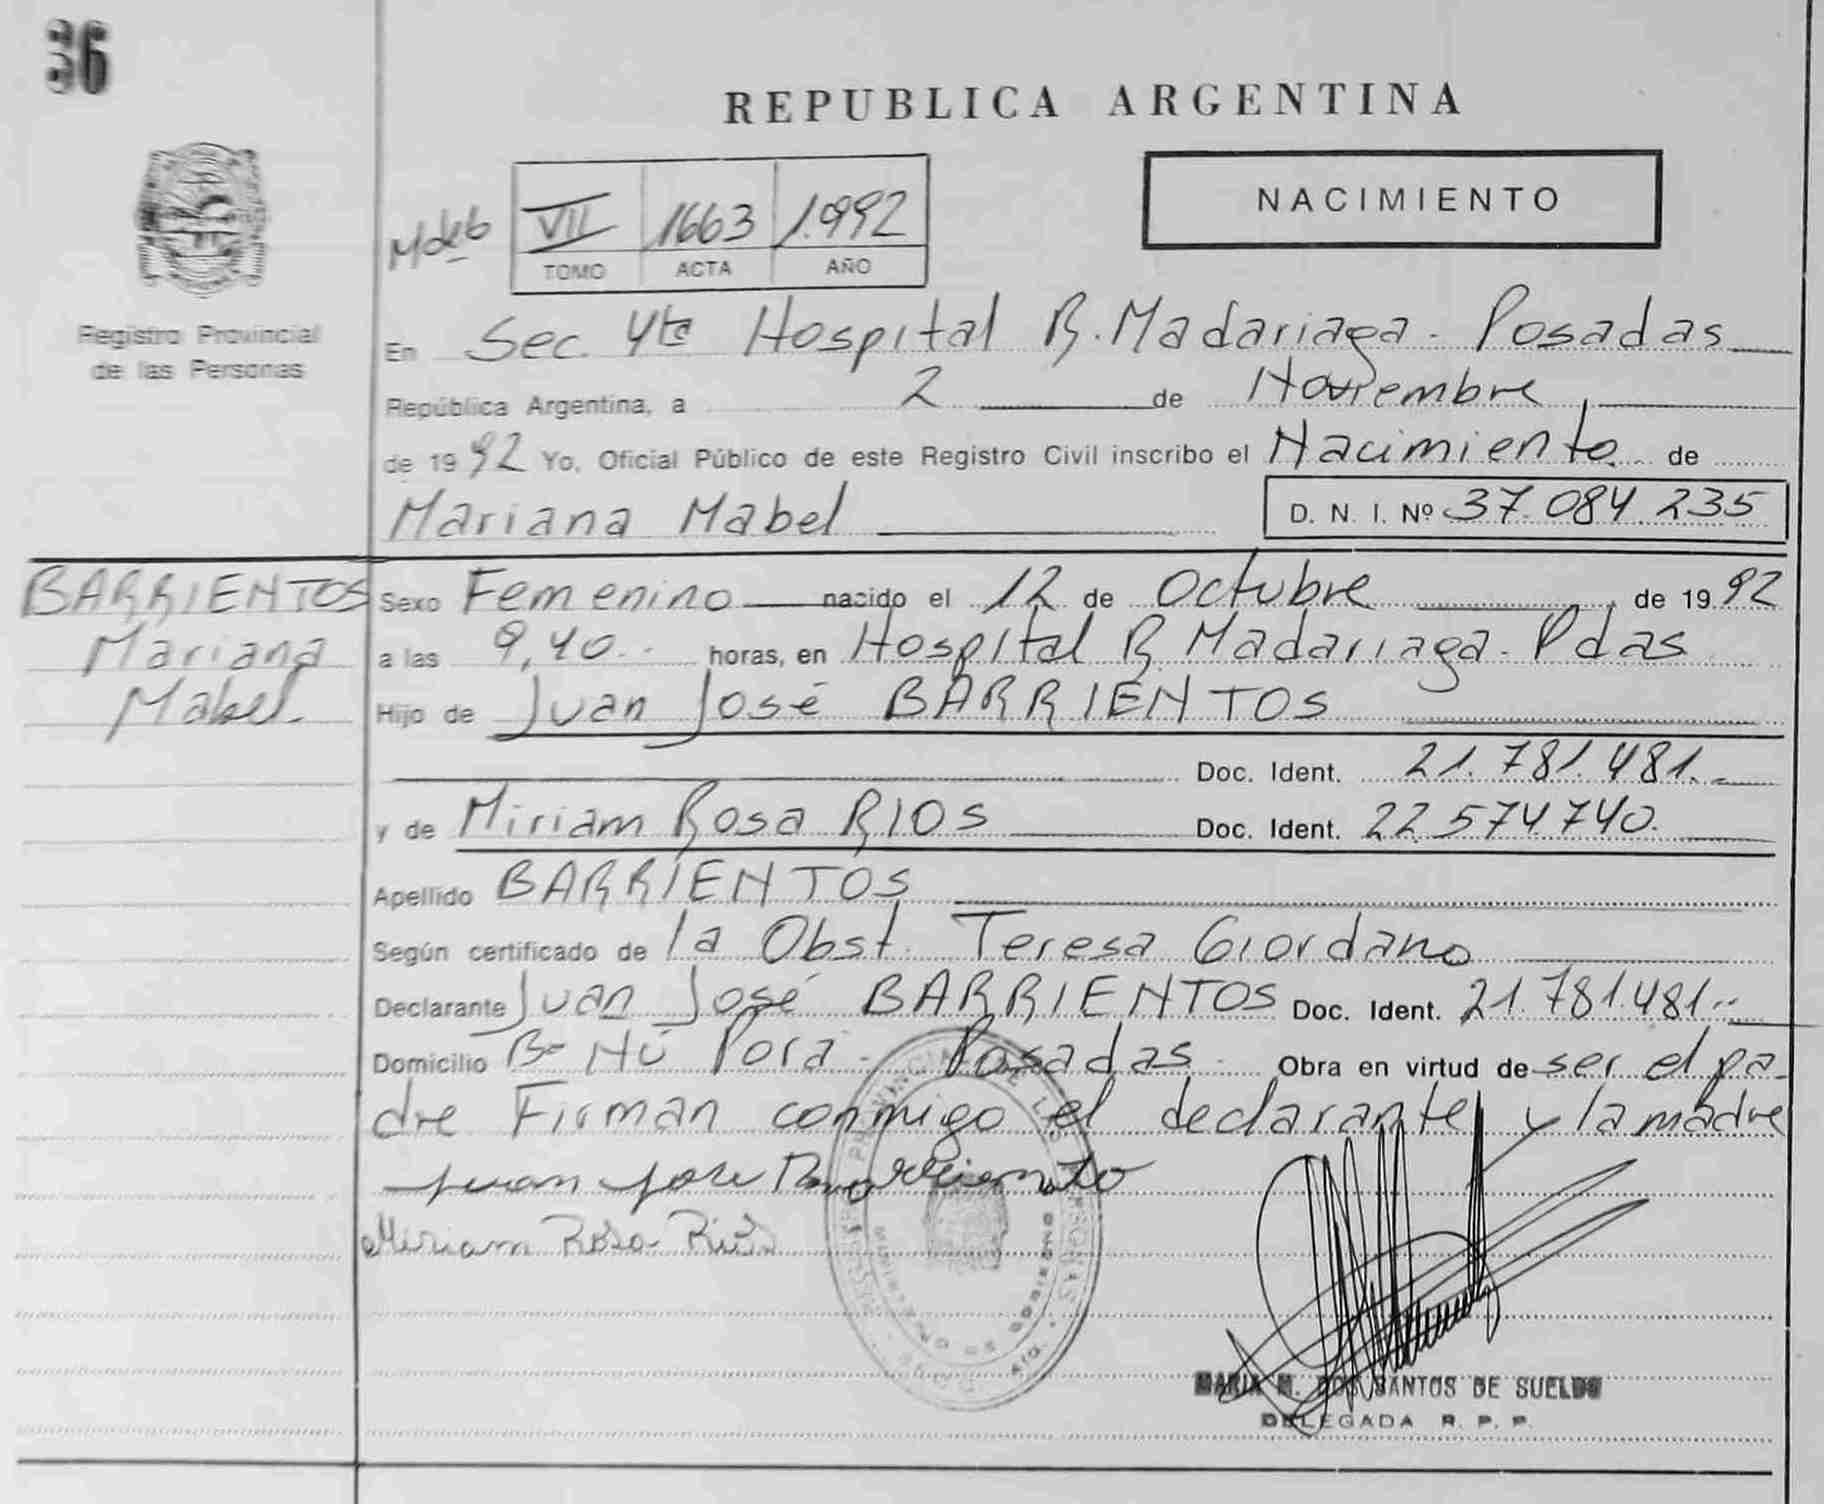 36
REPUBLICA ARGENTINA
NACIMIENTO
VII 1663 1.992
TOMO ACTA AÑO
Registro Provincial
de las Personas
En Sec. 4ta Hospital R. Madariaga - Posadas
República Argentina, a 2 de Noviembre
de 1992 Yo, Oficial Público de este Registro Civil inscribo el Nacimiento de
Mariana Mabel D. N. I. Nº 37.084.235
BARRIENTOS
Mariana
Mabel.
Sexo Femenino nacido el 12 de Octubre de 1992
a las 9,40 horas, en Hospital R. Madariaga - Pdas
Hijo de Juan José BARRIENTOS
Doc. Ident. 21.781.481.-
y de Miriam Rosa RIOS Doc. Ident. 22.574740.
Apellido BARRIENTOS
Según certificado de la Obst. Teresa Giordano
Declarante Juan José BARRIENTOS Doc. Ident. 21.781.481.-
Domicilio Bº Ñú Porá - Posadas - Obra en virtud de ser el pa-
dre Firman conmigo el declarante y la madre
Juan Jose Barriento
Miriam Rosa Ríos
MARIA M. DOS SANTOS DE SUELDO
DELEGADA R. P. P.